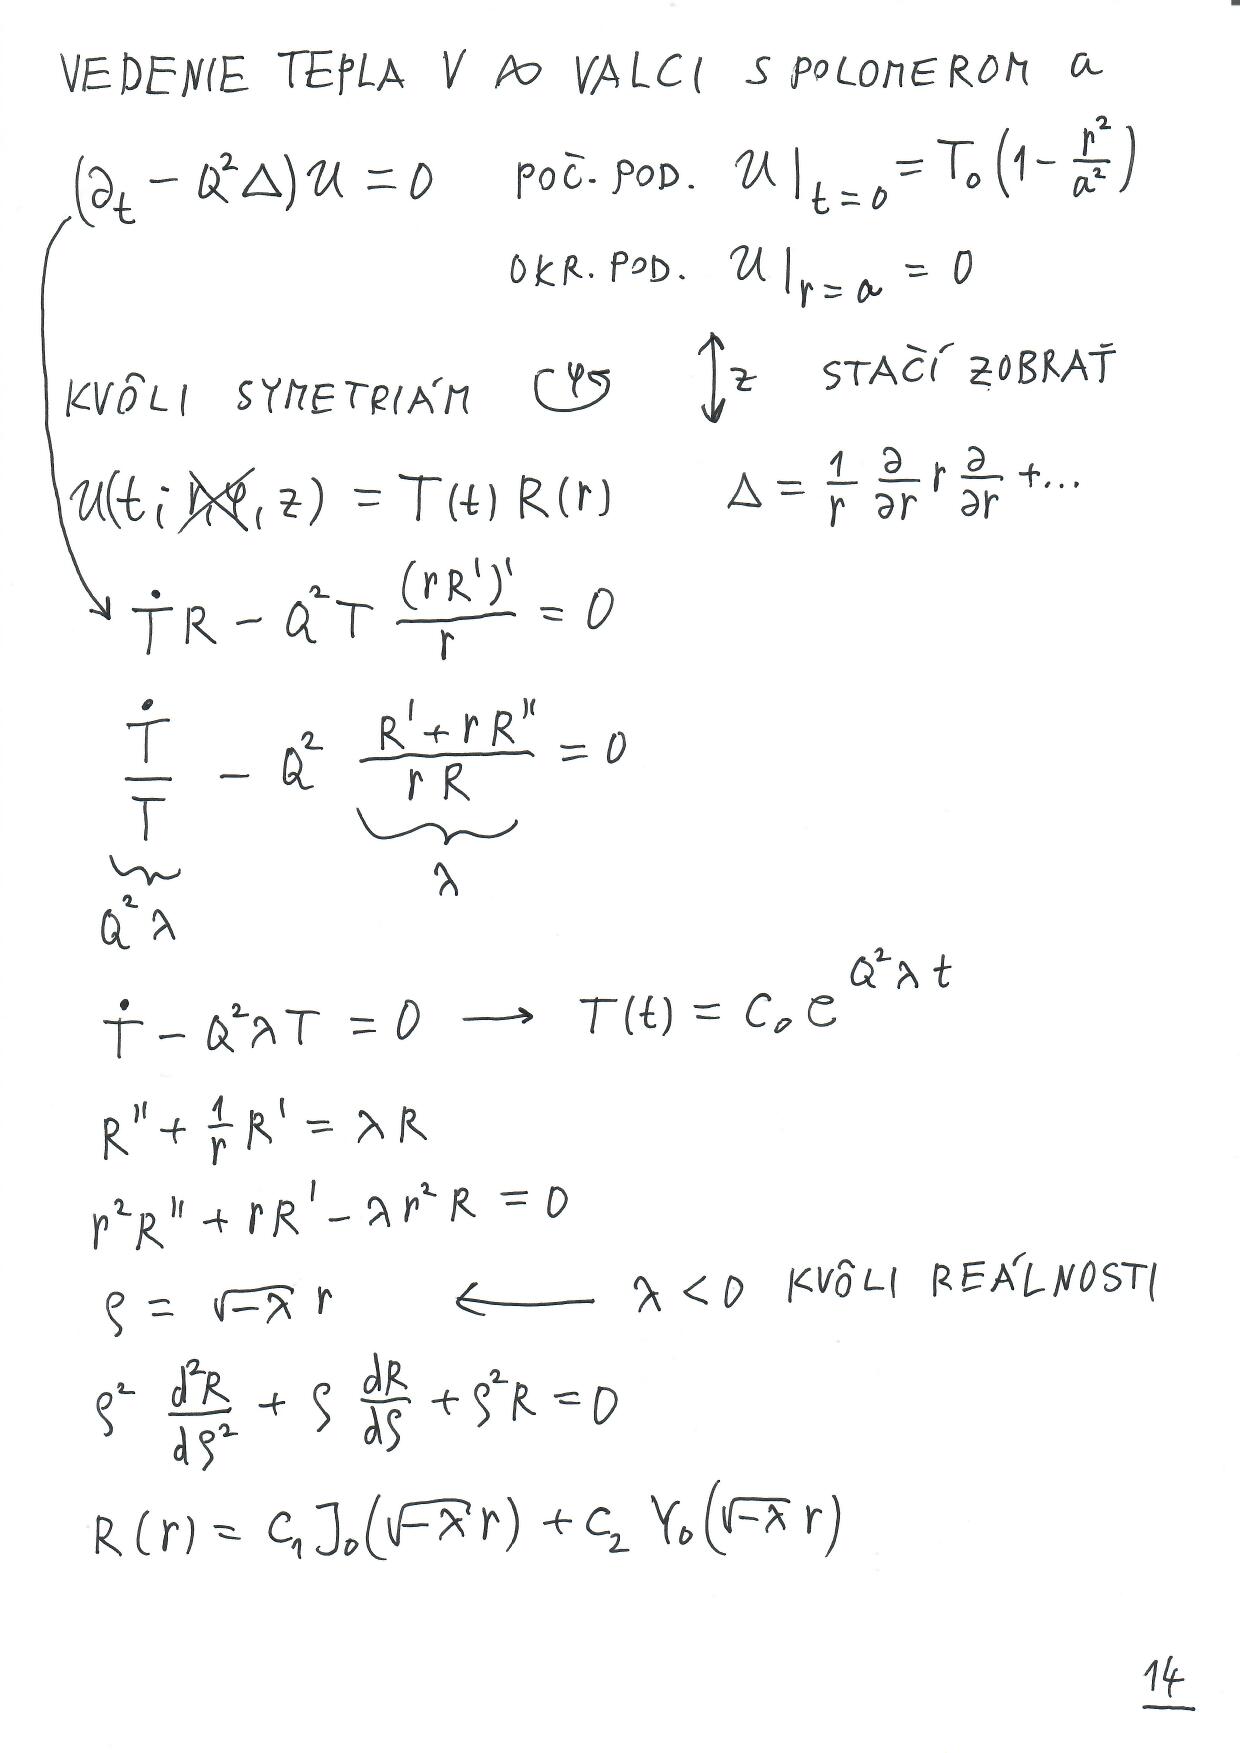 VEDENIE TEPLA V ∞ VALCI S POLOMEROM a
(∂_t − Q²Δ)U = 0 POČ. POD. U|_{t=0} = T₀(1 − r²/a²)
OKR. POD. U|_{r=a} = 0
KVÔLI SYMETRIÁM φ z STAČÍ ZOBRAŤ
U(t; r, φ, z) = T(t) R(r) Δ = 1/r ∂/∂r r ∂/∂r + ...
ṪR − Q²T (rR')'/r = 0
Ṫ/T − Q² (R' + rR'')/(rR) = 0
λ
Q²λ
Ṫ − Q²λT = 0 → T(t) = C₀ e^{Q²λt}
R'' + 1/r R' = λR
r²R'' + rR' − λr²R = 0
ρ = √−λ r ← λ < 0 KVÔLI REÁLNOSTI
ρ² d²R/dρ² + ρ dR/dρ + ρ²R = 0
R(r) = C₁J₀(√−λ r) + C₂ Y₀(√−λ r)
14